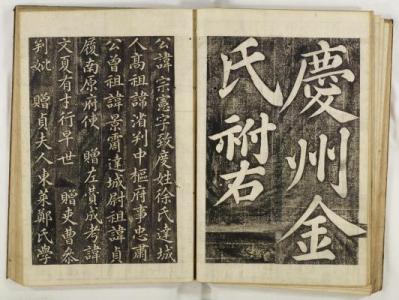 慶州金
氏祔右
公諱宗憲字致度姓徐氏達城
人高祖諱渻判中樞府事忠肅
公曾祖諱景霌達城尉祖諱貞
履南原府使 贈左贊成考諱
文夏有才行早世 贈吏曹參
判妣 贈貞夫人東萊鄭氏學